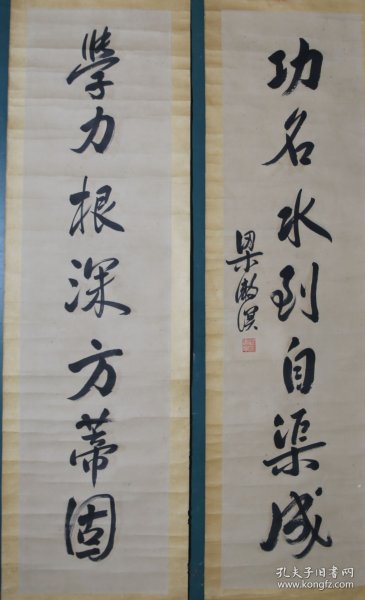 學力根深方蒂固
功名水到自渠成
梁漱溟
孔夫子旧书网
www.kongfz.com